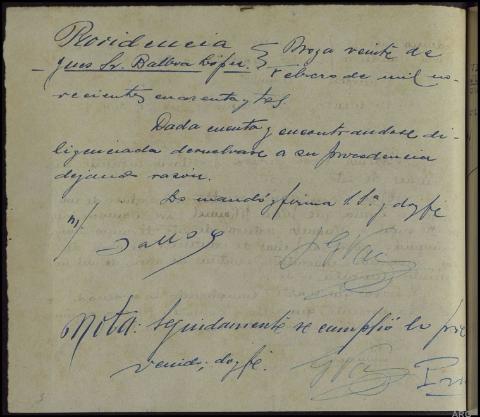 Providencia
Juez Sr. Balboa López. } Broza veinte de
Febrero de mil no-
vecientos cuarenta y tres.
Dada cuenta y encontrandose di-
ligenciada devuelvase a su procedencia
dejando razón.
Lo mandó y firma S.Sª. y doy fe
Nota: Seguidamente se cumplió lo pre
venido; doy fe.